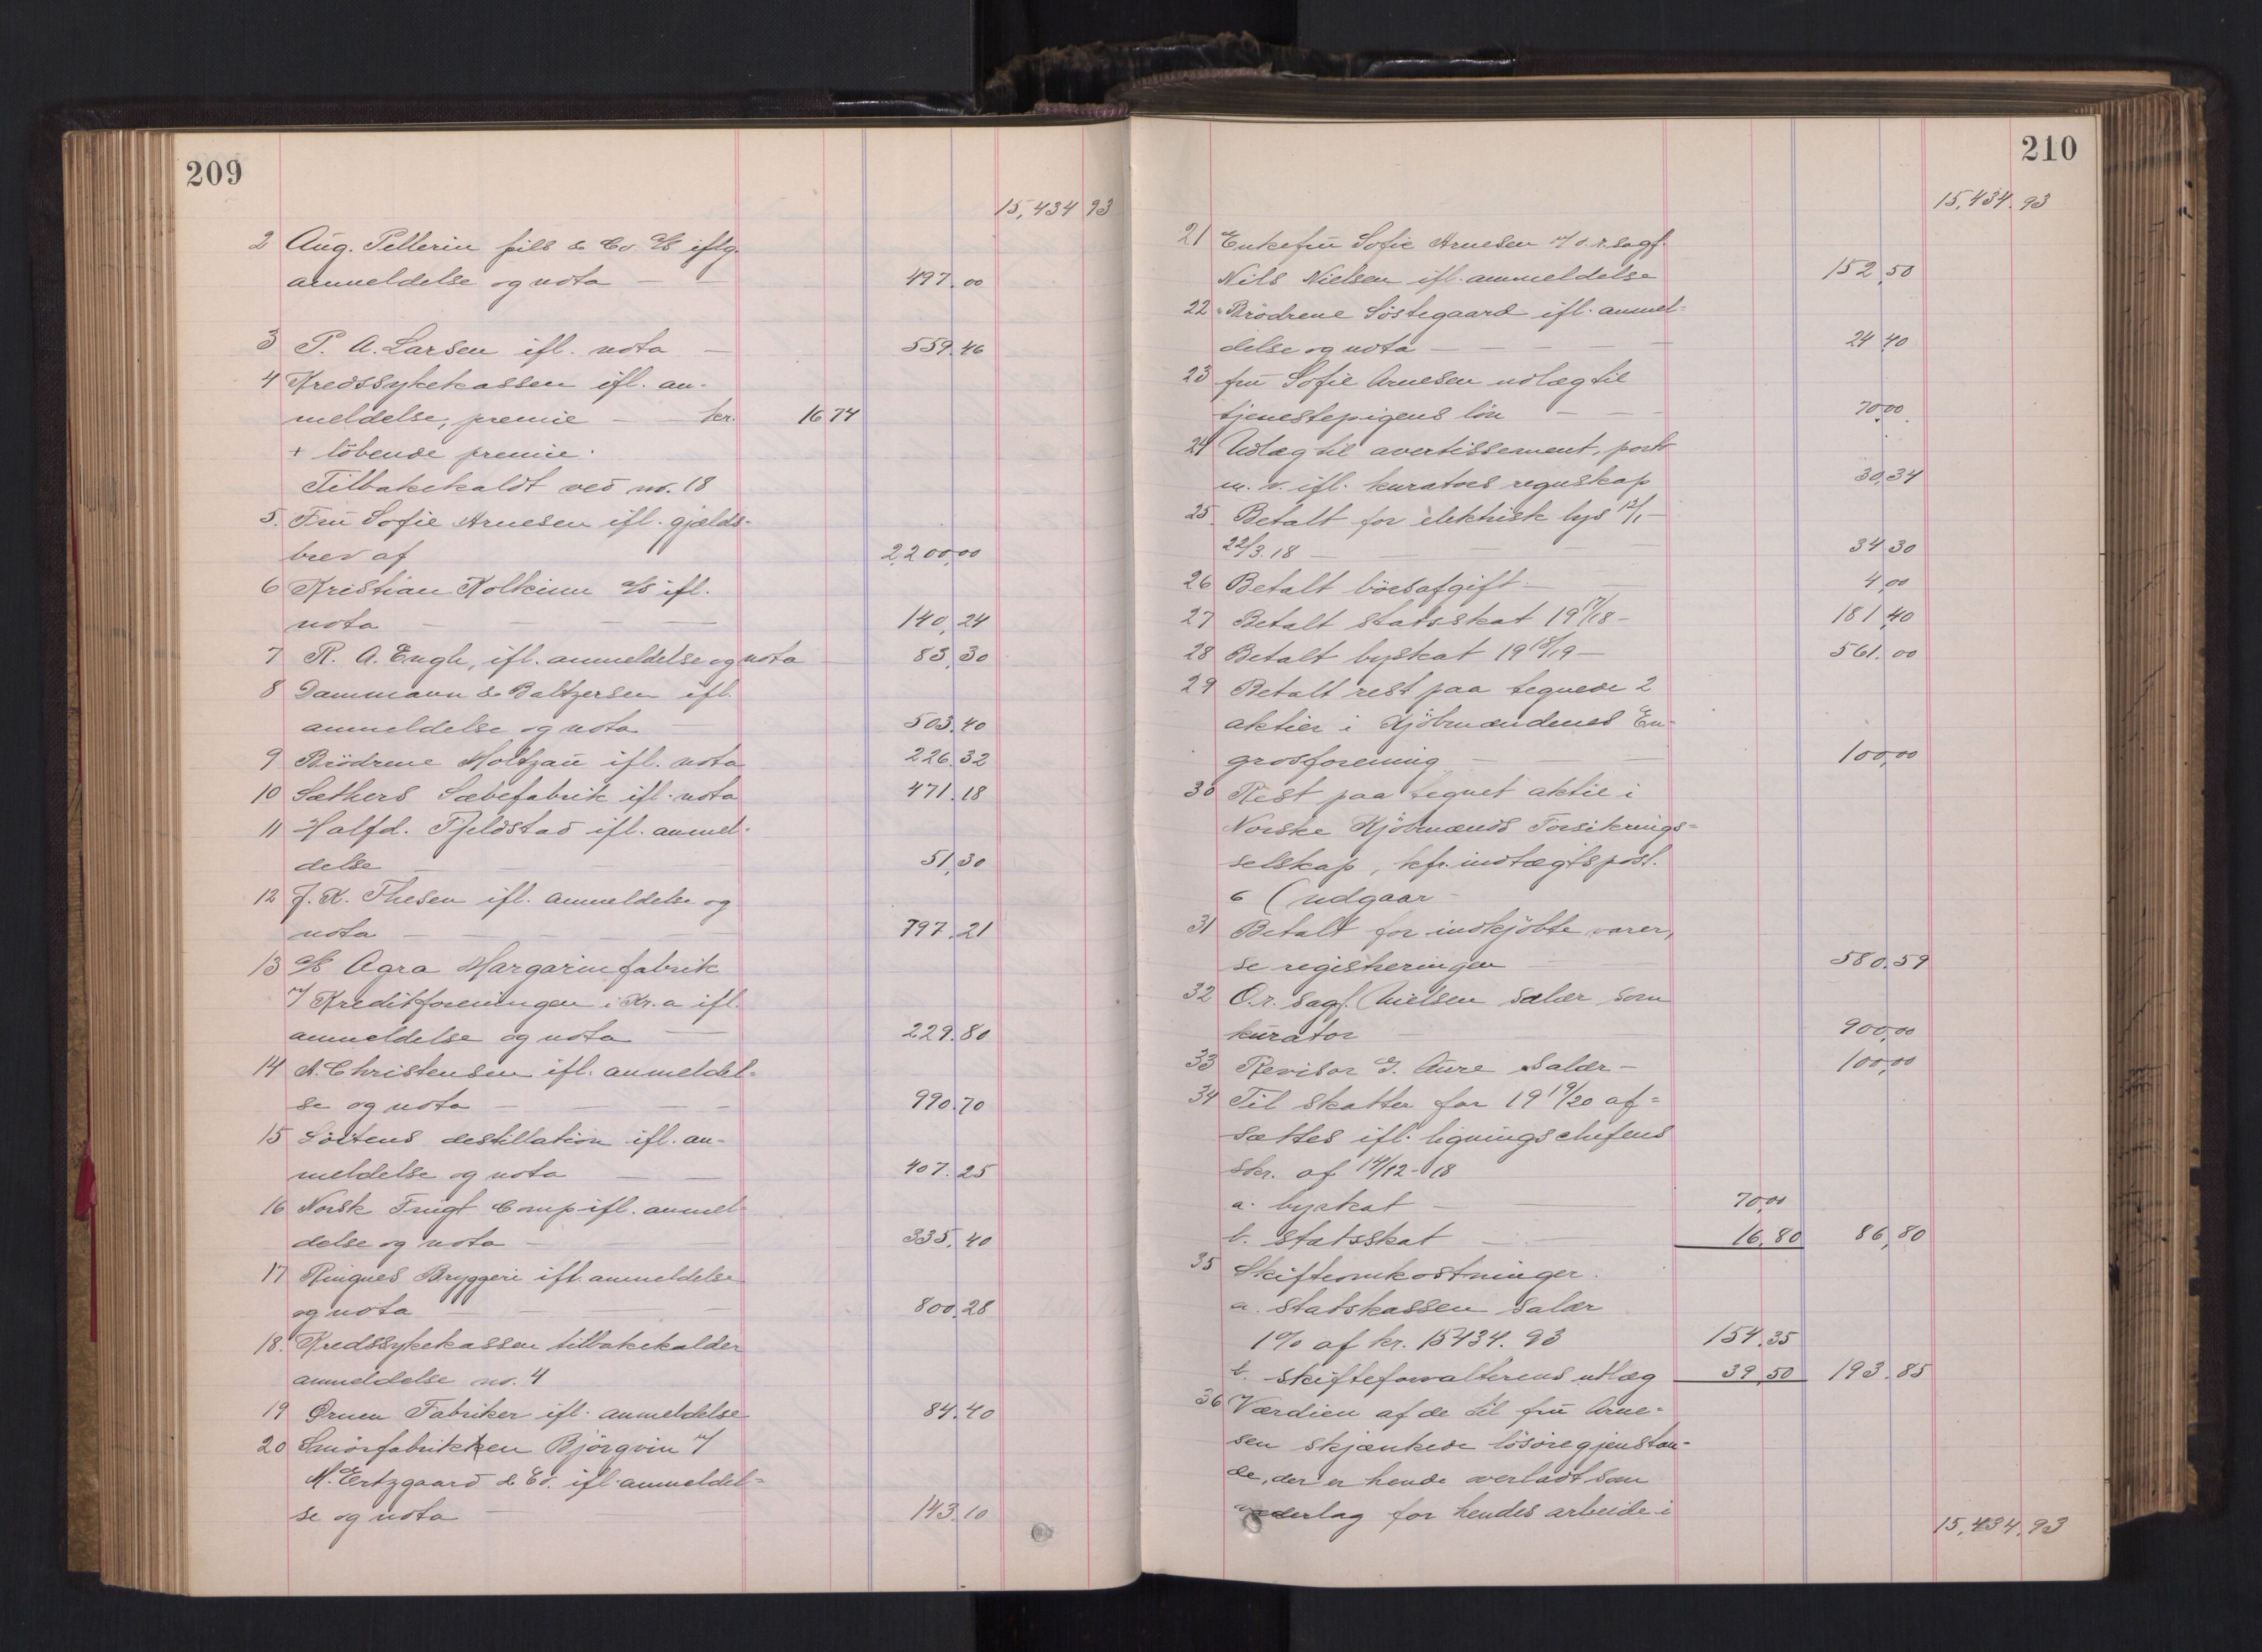 209
15,434 93
2 Aug. Pellerin fils & Co. A/S iflg.
anmeldelse og nota — — 497.00
3 P. A. Larsen ifl. nota — 559.46
4 Kredssykekassen ifl. an-
meldelse, premie — kr. 16 74
+ löbende premie.
Tilbakekaldt ved no. 18
5. Frü Sofie Arnesen ifl. gjælds-
brev af 2,200,00
6 Kristian Kolkinn A/S ifl.
nota — — — — 140,24
7 R. A. Engh, ifl. anmeldelse og nota — 83,30
8 Dammann & Baltzersen ifl.
anmeldelse og nota — 503.40
9 Brödrene Holtzaü ifl. nota 226.32
10 Sæthers Sæbefabrik ifl. nota 471.18
11 Halfd. Fjeldstad ifl. anmel-
delse — — — 51,30
12 J. K. Thesen ifl. anmeldelse og
nota — — — — 797.21
13 A/S Agra Margarinfabrik
v/ Kreditforeningen i Kr.a ifl.
anmeldelse og nota — 229.80
14 A. Christensen ifl. anmeldel-
se og nota — — — 990.70
15 Loitens destillation ifl. an-
meldelse og nota — — 407.25
16 Norsk Frugt Comp ifl. anmel-
delse og nota — — 335.40
17 Ringnes Bryggeri ifl. anmeldelse
og nota — — — 800.28
18. Kredssykekassen tilbakekalder
anmeldelse no. 4
19 Ørnen Fabriker ifl. anmeldelse 84.40
20 Smörfabrikken Björgvin v/
M. Ertzgaard & Co. ifl. anmeldel-
se og nota — — 143.10
210
15,434.93
21 Enkefrü Sofie Arnesen v/ o.r.sagf.
Nils Nielsen ifl. anmeldelse 152,50
22 Brödrene Söstegaard ifl. anmel-
delse og nota — — — — 24 40
23 frü Sofie Arnesen udlæg til
tjenestepigens lön — — — 70,00
24 Udlæg til avertissement, porto
m. v. ifl. kurators regnskap 30,34
25 Betalt for elektrisk lys 12/1 —
22/3.18 — — — — 34 30
26 Betalt börsafgift — 4,00
27 Betalt statsskat 19 17/18 — 181,40
28 Betalt byskat 19 18/19 — 561.00
29 Betalt rest paa tegnede 2
aktier i Kjöbmændenes En-
grosforening — — — 100,00
30 Rest paa tegnet aktie i
Norske Kjöbmænds Forsikrings-
selskap, kfr. indtægtspost.
6 (udgaar —
31 Betalt for indkjöbte varer,
se registreringen — — 580.59
32 O.r. sagf. Nielsen salær som
kürator — — 900,00
33 Revisor G. Aüre salær — 100,00
34 Til skatter for 19 19/20 af-
sættes ifl. ligningschefens
skr. af 14/12-18
a. byskat — — 70,00
b. statsskat — — 16.80 86,80
35 Skifteomkostninger.
a. statskassen salær
1% af kr. 15434.93 154.35
b. skifteforvalterens utlæg 39,50 193.85
36 Værdien af de til frü Arne-
sen skjænkede lösöregjenstan-
de, der er hende overladt som
vederlag for hendes arbeide i
15,434.93